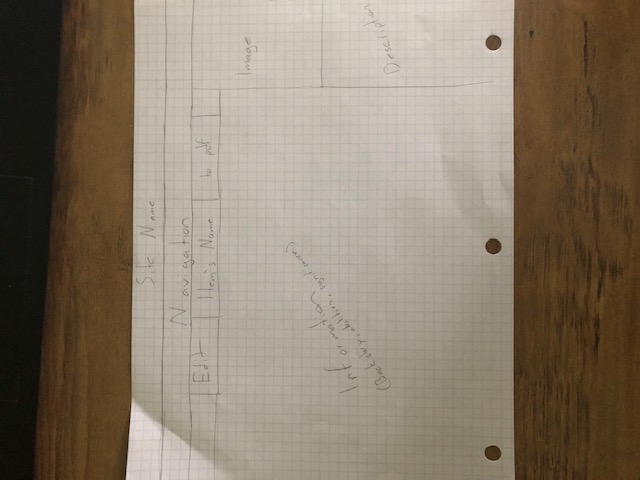 Site Name
Navigation
Edit
Item's Name
to pdf
Image
Information
(Backstory, abilities, significance)
Description